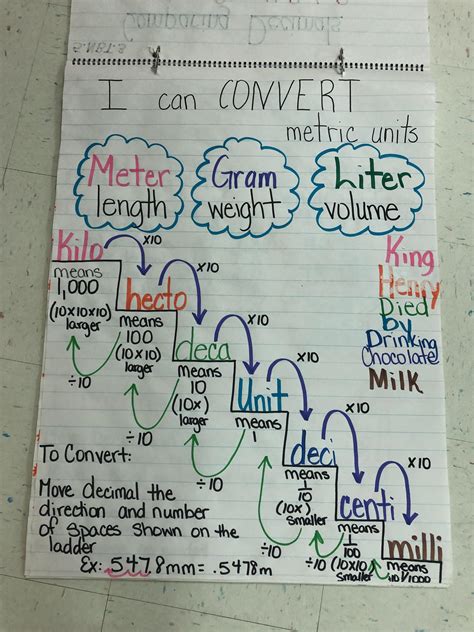 Comparing Decimals
5.NBT.3
I can CONVERT
metric units
Meter
length
Gram
weight
Liter
volume
Kilo
means
1,000
(10x10x10)
larger
x10
hecto
means
100
(10x10)
larger
x10
÷10
deca
means
10
(10x)
larger
x10
÷10
Unit
means
1
x10
÷10
deci
means
1/10
(10x)
smaller
x10
÷10
centi
means
1/100
(10x10)
smaller
x10
÷10
milli
means
King
Henry
Died
by
Drinking
Chocolate
Milk
To Convert:
Move decimal the
direction and number
of spaces shown on the
ladder
Ex: .547.8mm = .5478m